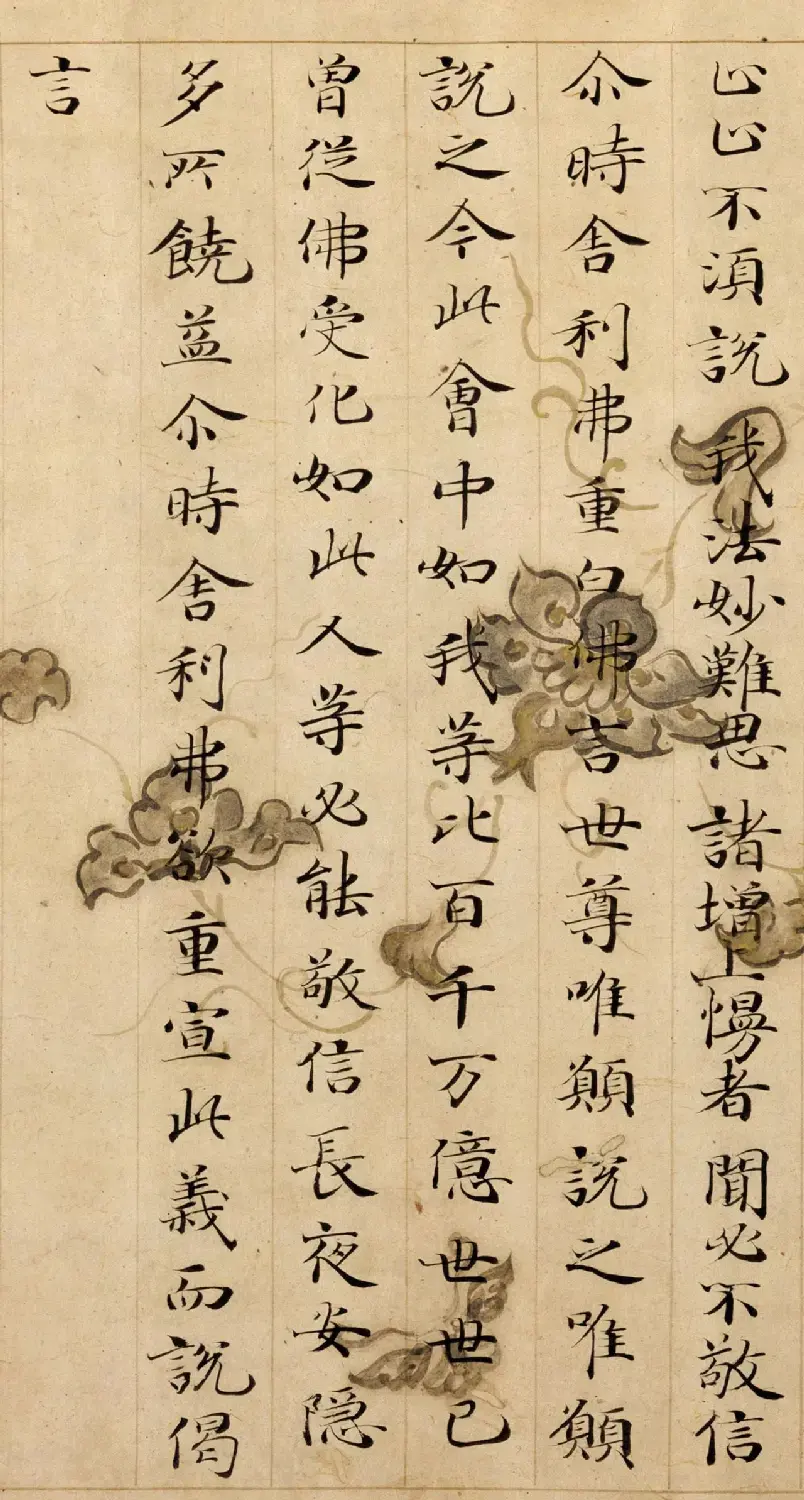 止止不須說 我法妙難思 諸增上慢者 聞必不敬信
尒時舍利弗重白佛言世尊唯願說之唯願
說之今此會中如我等比百千万億世世已
曾從佛受化如此人等必能敬信長夜安隱
多所饒益尒時舍利弗欲重宣此義而說偈
言